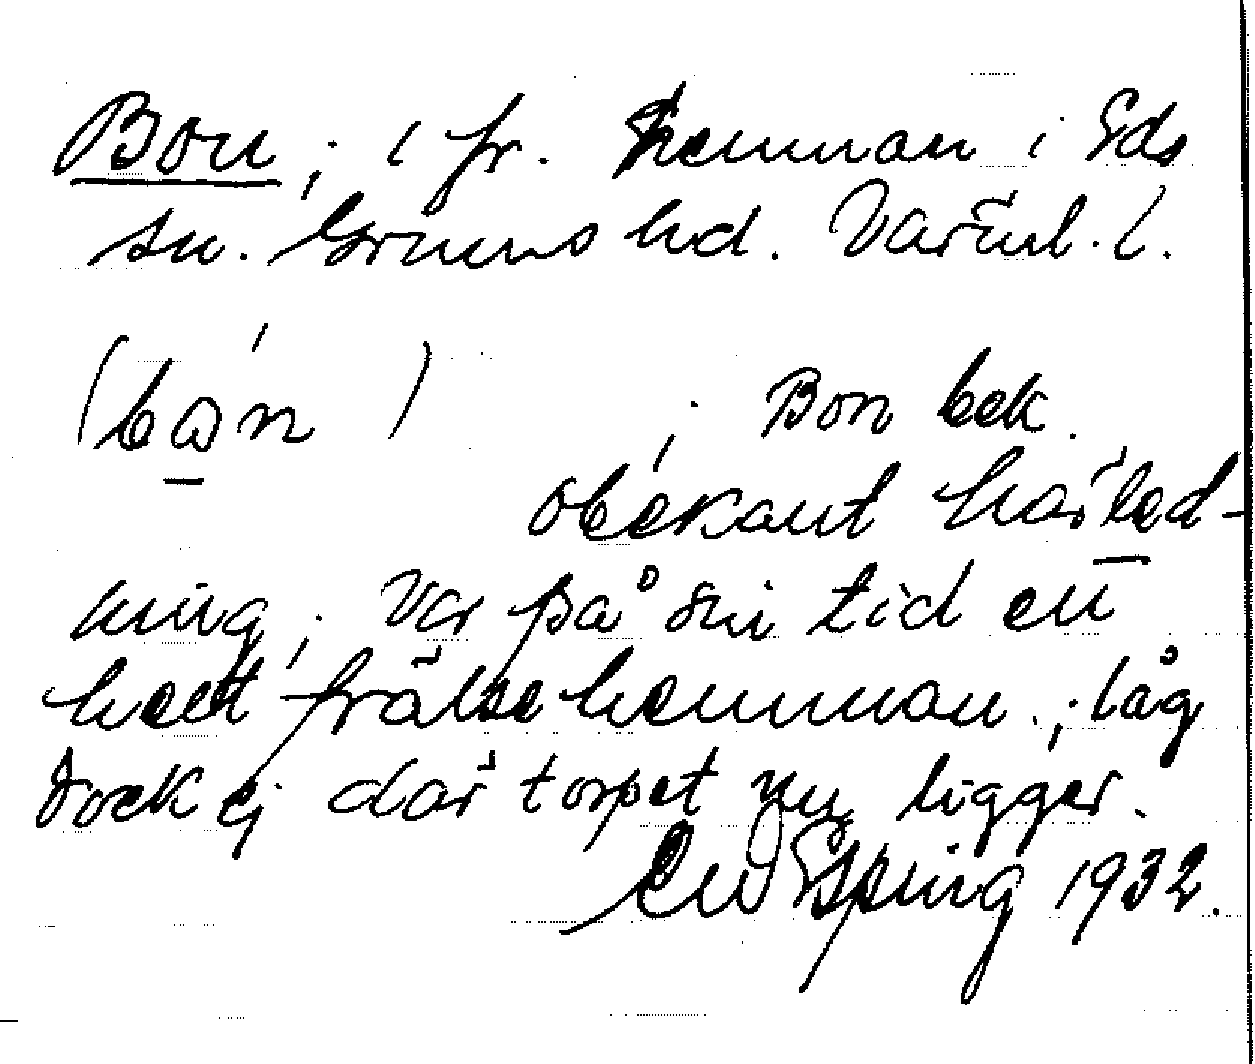 Bon ; i fr. hemman i Eds
sn. Grums hd. Värml. l.
(bo̲n) ; Bon bek.
obekant härled-
ning ; Var på sin tid en
helt frälsehemman ; låg
dock ej där torpet nu ligger.
Espling 1932.